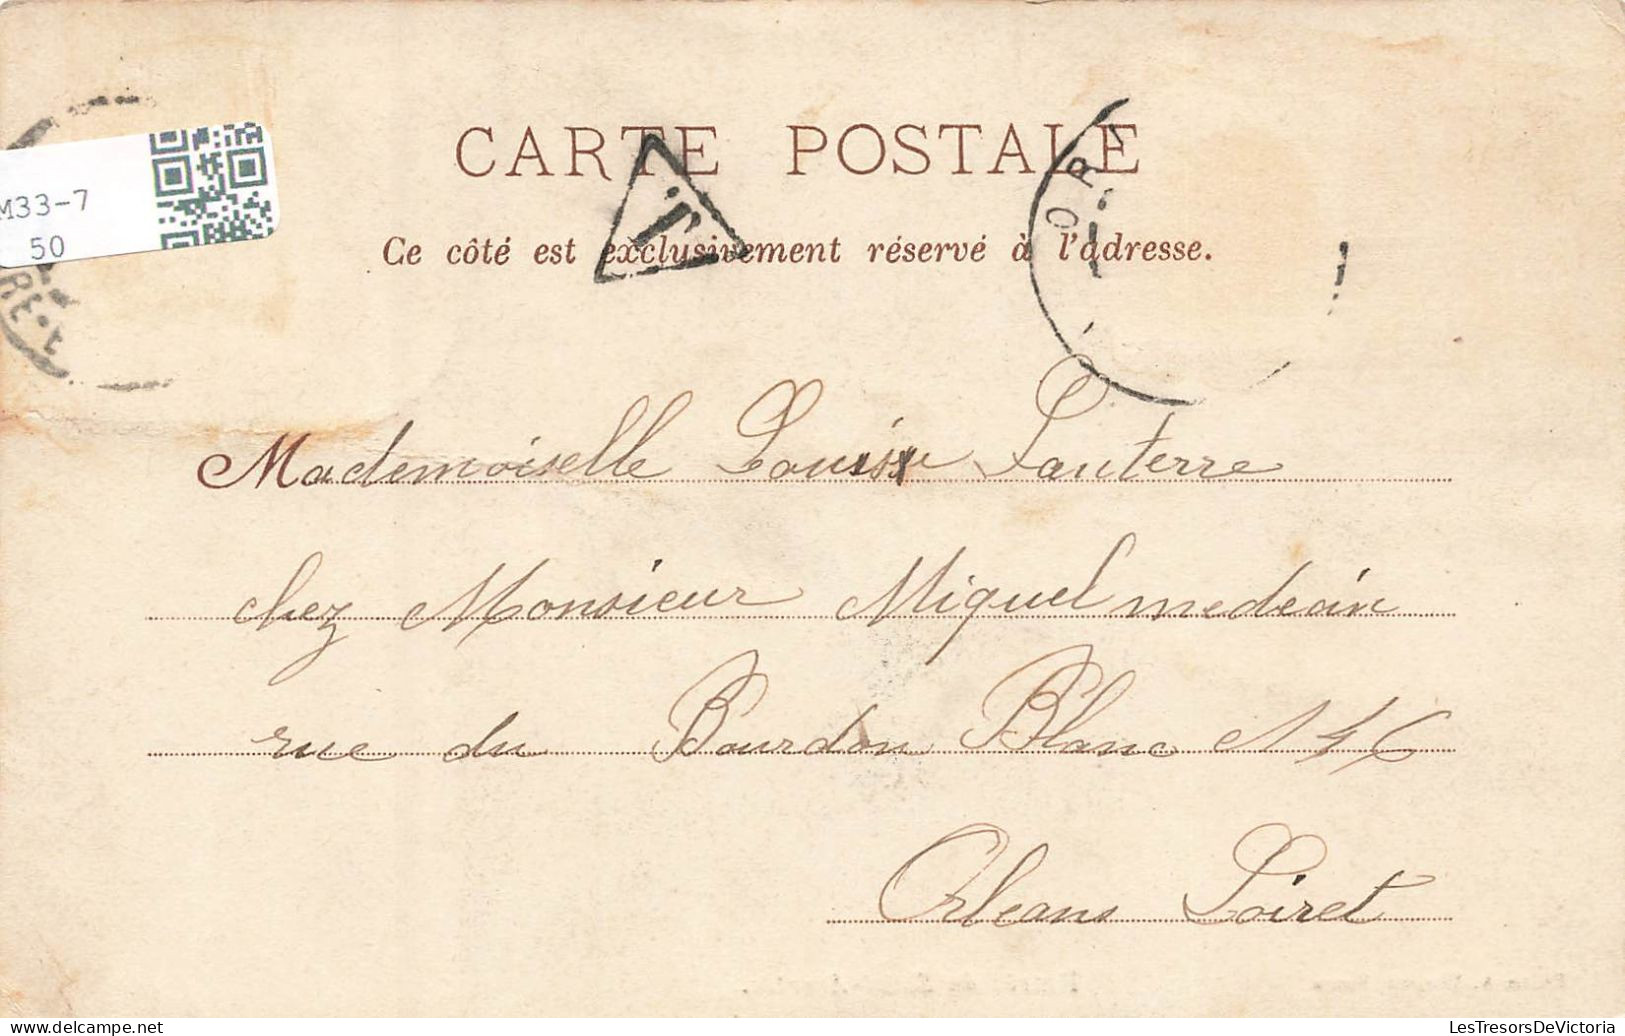 CARTE POSTALE
Ce côté est exclusivement réservé à l'adresse.
T
M33-7
50
Mademoiselle Louise Lauterre
chez Monsieur Miquel medecin
rue du Bourdon Blanc N 46
Orleans Loiret
LesTresorsDeVictoria